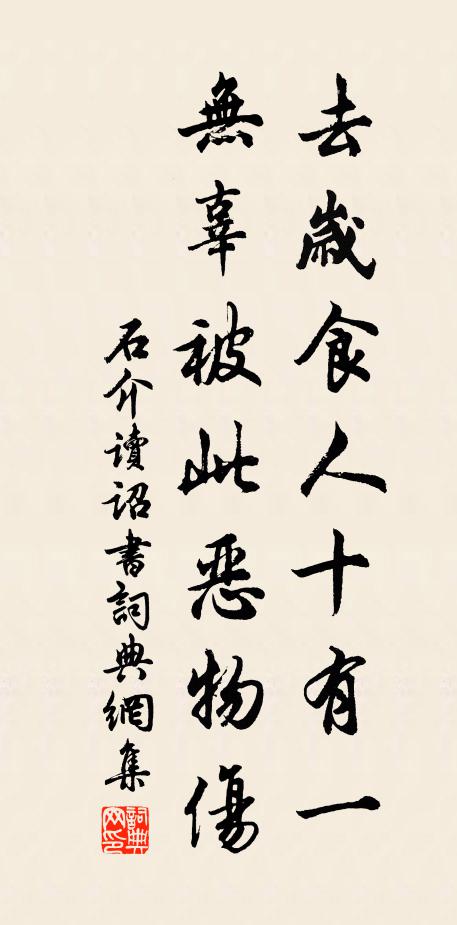 去歲食人十有一
無辜被此惡物傷
石介讀詔書詞典網集
詞典网印